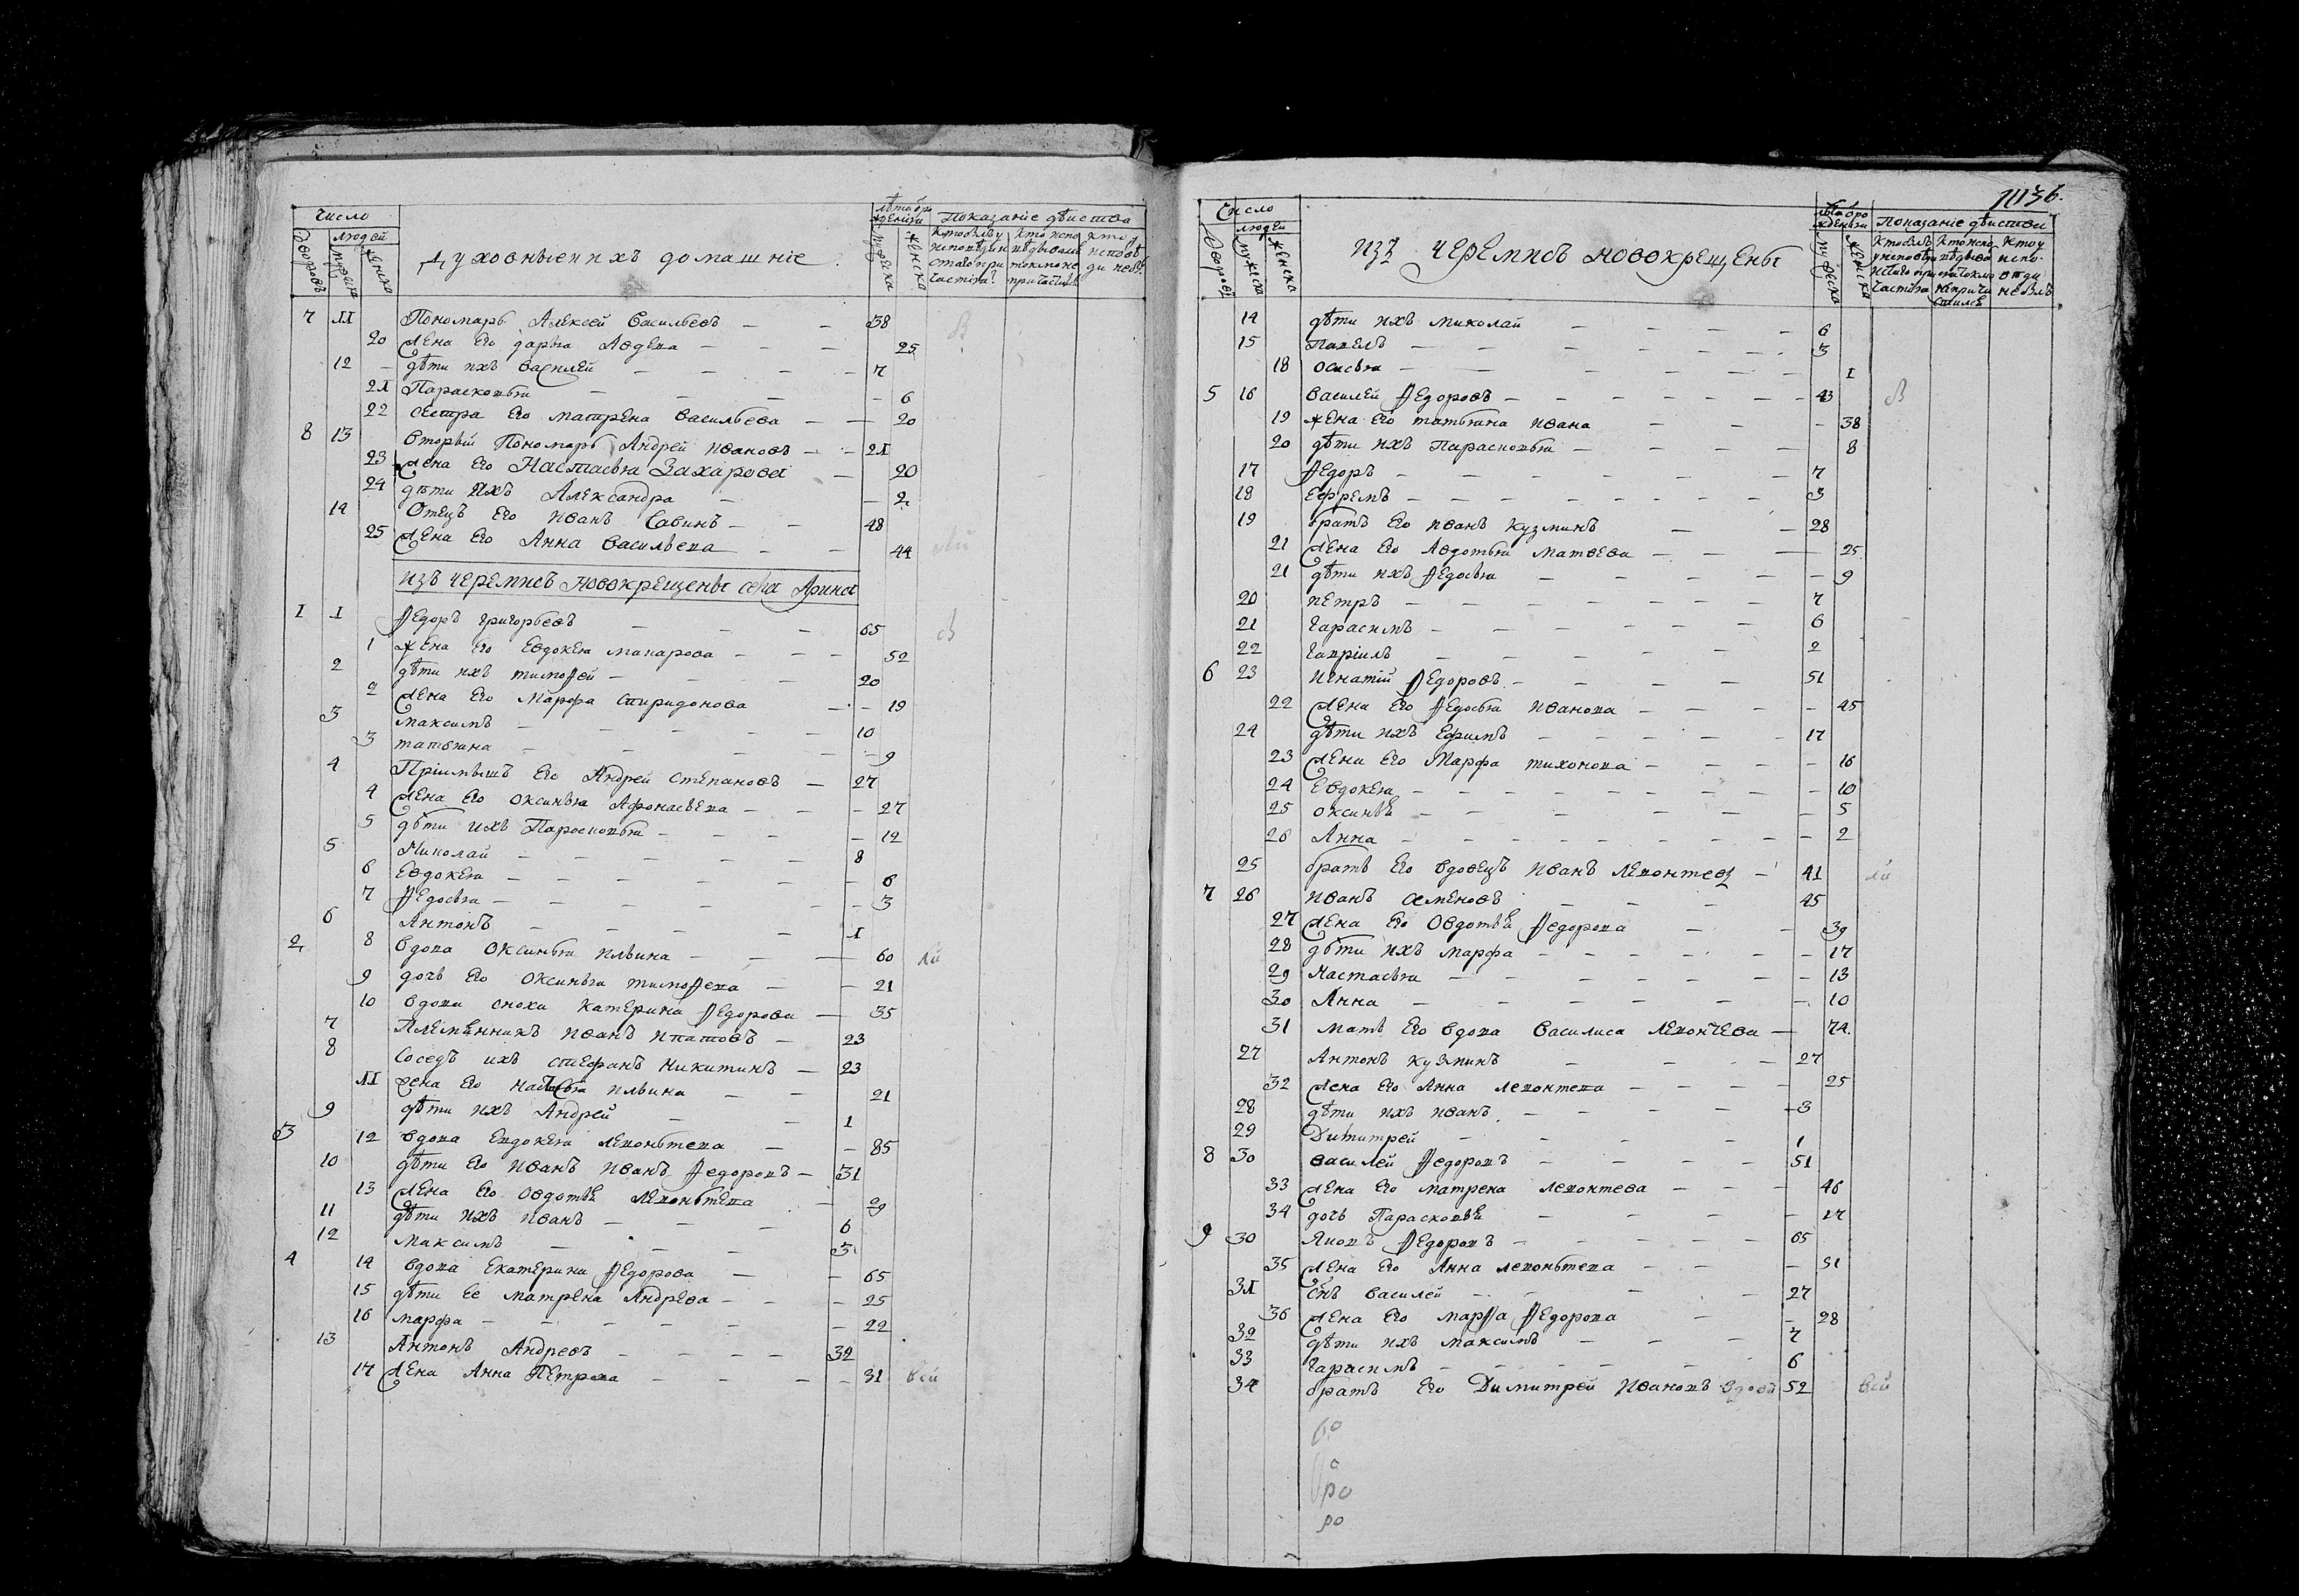 Число
людей
Дворовъ
мужеска
женска
Духовныеи ихъ домашніе
лѣта ѿ ро
жденія
мужеска
женска
Показаніе дѣиства
7 11 Пономарь Алексѣй Васильевъ — — 38
20 Жена Его дарья Авдеева — — — 25
12 — дѣти ихъ Василей — — — — 7
21 Парасковья — — — 6
22 сестра Его матрена Васильева — — 20
8 13 Вторый Пономарь Андрей Ивановъ — — 21
23 Жена Его Настасья Захарова — 20
24 дѣти Ихъ Александра — — 2
14 Отецъ Его Иванъ Савинъ — — 48
25 Жена Его Анна Васильева — — 44
изъ черемисъ новокрещены села Арина
1 1 Ѳедоръ григорьевъ — — — 65
1 жена Его Евдокея макарова — — — 52
2 дѣти ихъ тимоѳей — — — — 20
2 Жена Его Марфа спиридонова — — 19
3 максимъ — — — — — 10
3 татьяна — — — — — 9
4 Пріимышъ Его Андрей степановъ — 27
4 Жена Его оксинья Афонасьева — — — 27
5 дѣти ихъ Парасковья — — — — 12
5 Николай — — — — — 8
6 Евдокея — — — — — — 6
7 Ѳедосья — — — — — — 3
6 Антонъ — — — — — 1
2 8 вдова оксинья ильина — — — 60
9 дочь Его оксинья тимоѳева — — 21
10 вдова сноха катерина Ѳедорова — 35
7 Племенникъ иванъ ипатовъ — 23
8 соседъ ихъ стефанъ никитинъ — 23
11 жена Его настасья ильина — — 21
9 дѣти ихъ Андрей — — 1
3 12 вдова Евдокея левонтьева — — 85
10 дѣти Ея Иванъ Иванъ Ѳедоровъ — 31
13 Жена Его овдотья левонтьева — 29
11 дѣти ихъ Иванъ — — — 6
12 максимъ — — — 3
4 14 вдова Екатерина Ѳедорова — — 65
15 дѣти Ее матрена Андрева — — — 25
16 марфа — — — — — — — 22
13 Антонъ Андревъ — — — — 32
17 Жена Анна Петрова — — — — 31
Число
людей
Дворовъ
мужска
женска
изъ черемисъ новокрещены
лѣта ѿ ро
жденія
мужеска
женска
Показаніе дѣистви
14 дѣти ихъ миколай — — — — 6
15 Павелъ — — — — — — 3
18 осисья — — — — — — 1
5 16 Василей Ѳедоровъ — — — — — — 43
19 жена Его татьяна ивана — — — 38
20 дѣти ихъ Парасковья — — — — 8
17 Ѳедоръ — — — — — — 7
18 Ефремъ — — — — — — — 3
19 братъ Его иванъ кузминъ — — 28
21 Жена Его Авдотья матвева — — — 25
21 дѣти ихъ Ѳедосья — — — — — 9
20 петръ — — — — — — 7
21 гарасимъ — — — — — 6
22 гавріилъ — — — — — 2
6 23 игнатій Ѳедоровъ — — — — 51
22 Жена Его Ѳедосья иванова — — — — 45
24 дѣти ихъ Ефимъ — — — — — 17
23 Жена Его Марфа тихонова — — — — 16
24 Евдокея — — — — — — — — 10
25 оксинья — — — — — — 5
26 Анна — — — — — — — — 2
25 братъ Его вдовецъ Иванъ левонтевъ — 41
7 26 иванъ семеновъ — — — 45
27 Жена Его овдотья Ѳедорова — — 39
28 дѣти ихъ марфа — — — — — — 17
29 Настасья — — — — — — — 13
30 Анна — — — — — — — 10
31 мать Его вдова василиса левонтева — 74
27 Антонъ кузминъ — — — — 27
32 Жена Его Анна левонтева — — — — 25
28 дѣти ихъ иванъ — — — — — 3
29 Димитрей — — — — — 1
8 30 василей Ѳедоровъ — — — — 51
33 Жена Его матрена левонтева — — — 46
34 дочь Парасковья — — — — — 17
9 30 Яковъ Ѳедоровъ — — — — — 65
35 Жена Его Анна левонтьева — — — 51
31 сынъ василей — — — — — 27
36 Жена Его марѳа Ѳедорова — — 28
32 дѣти ихъ максимъ — — — 7
33 гарасимъ — — — — — — 6
34 братъ Его Димитрей Ивановъ вдовъ 52
ро
ро